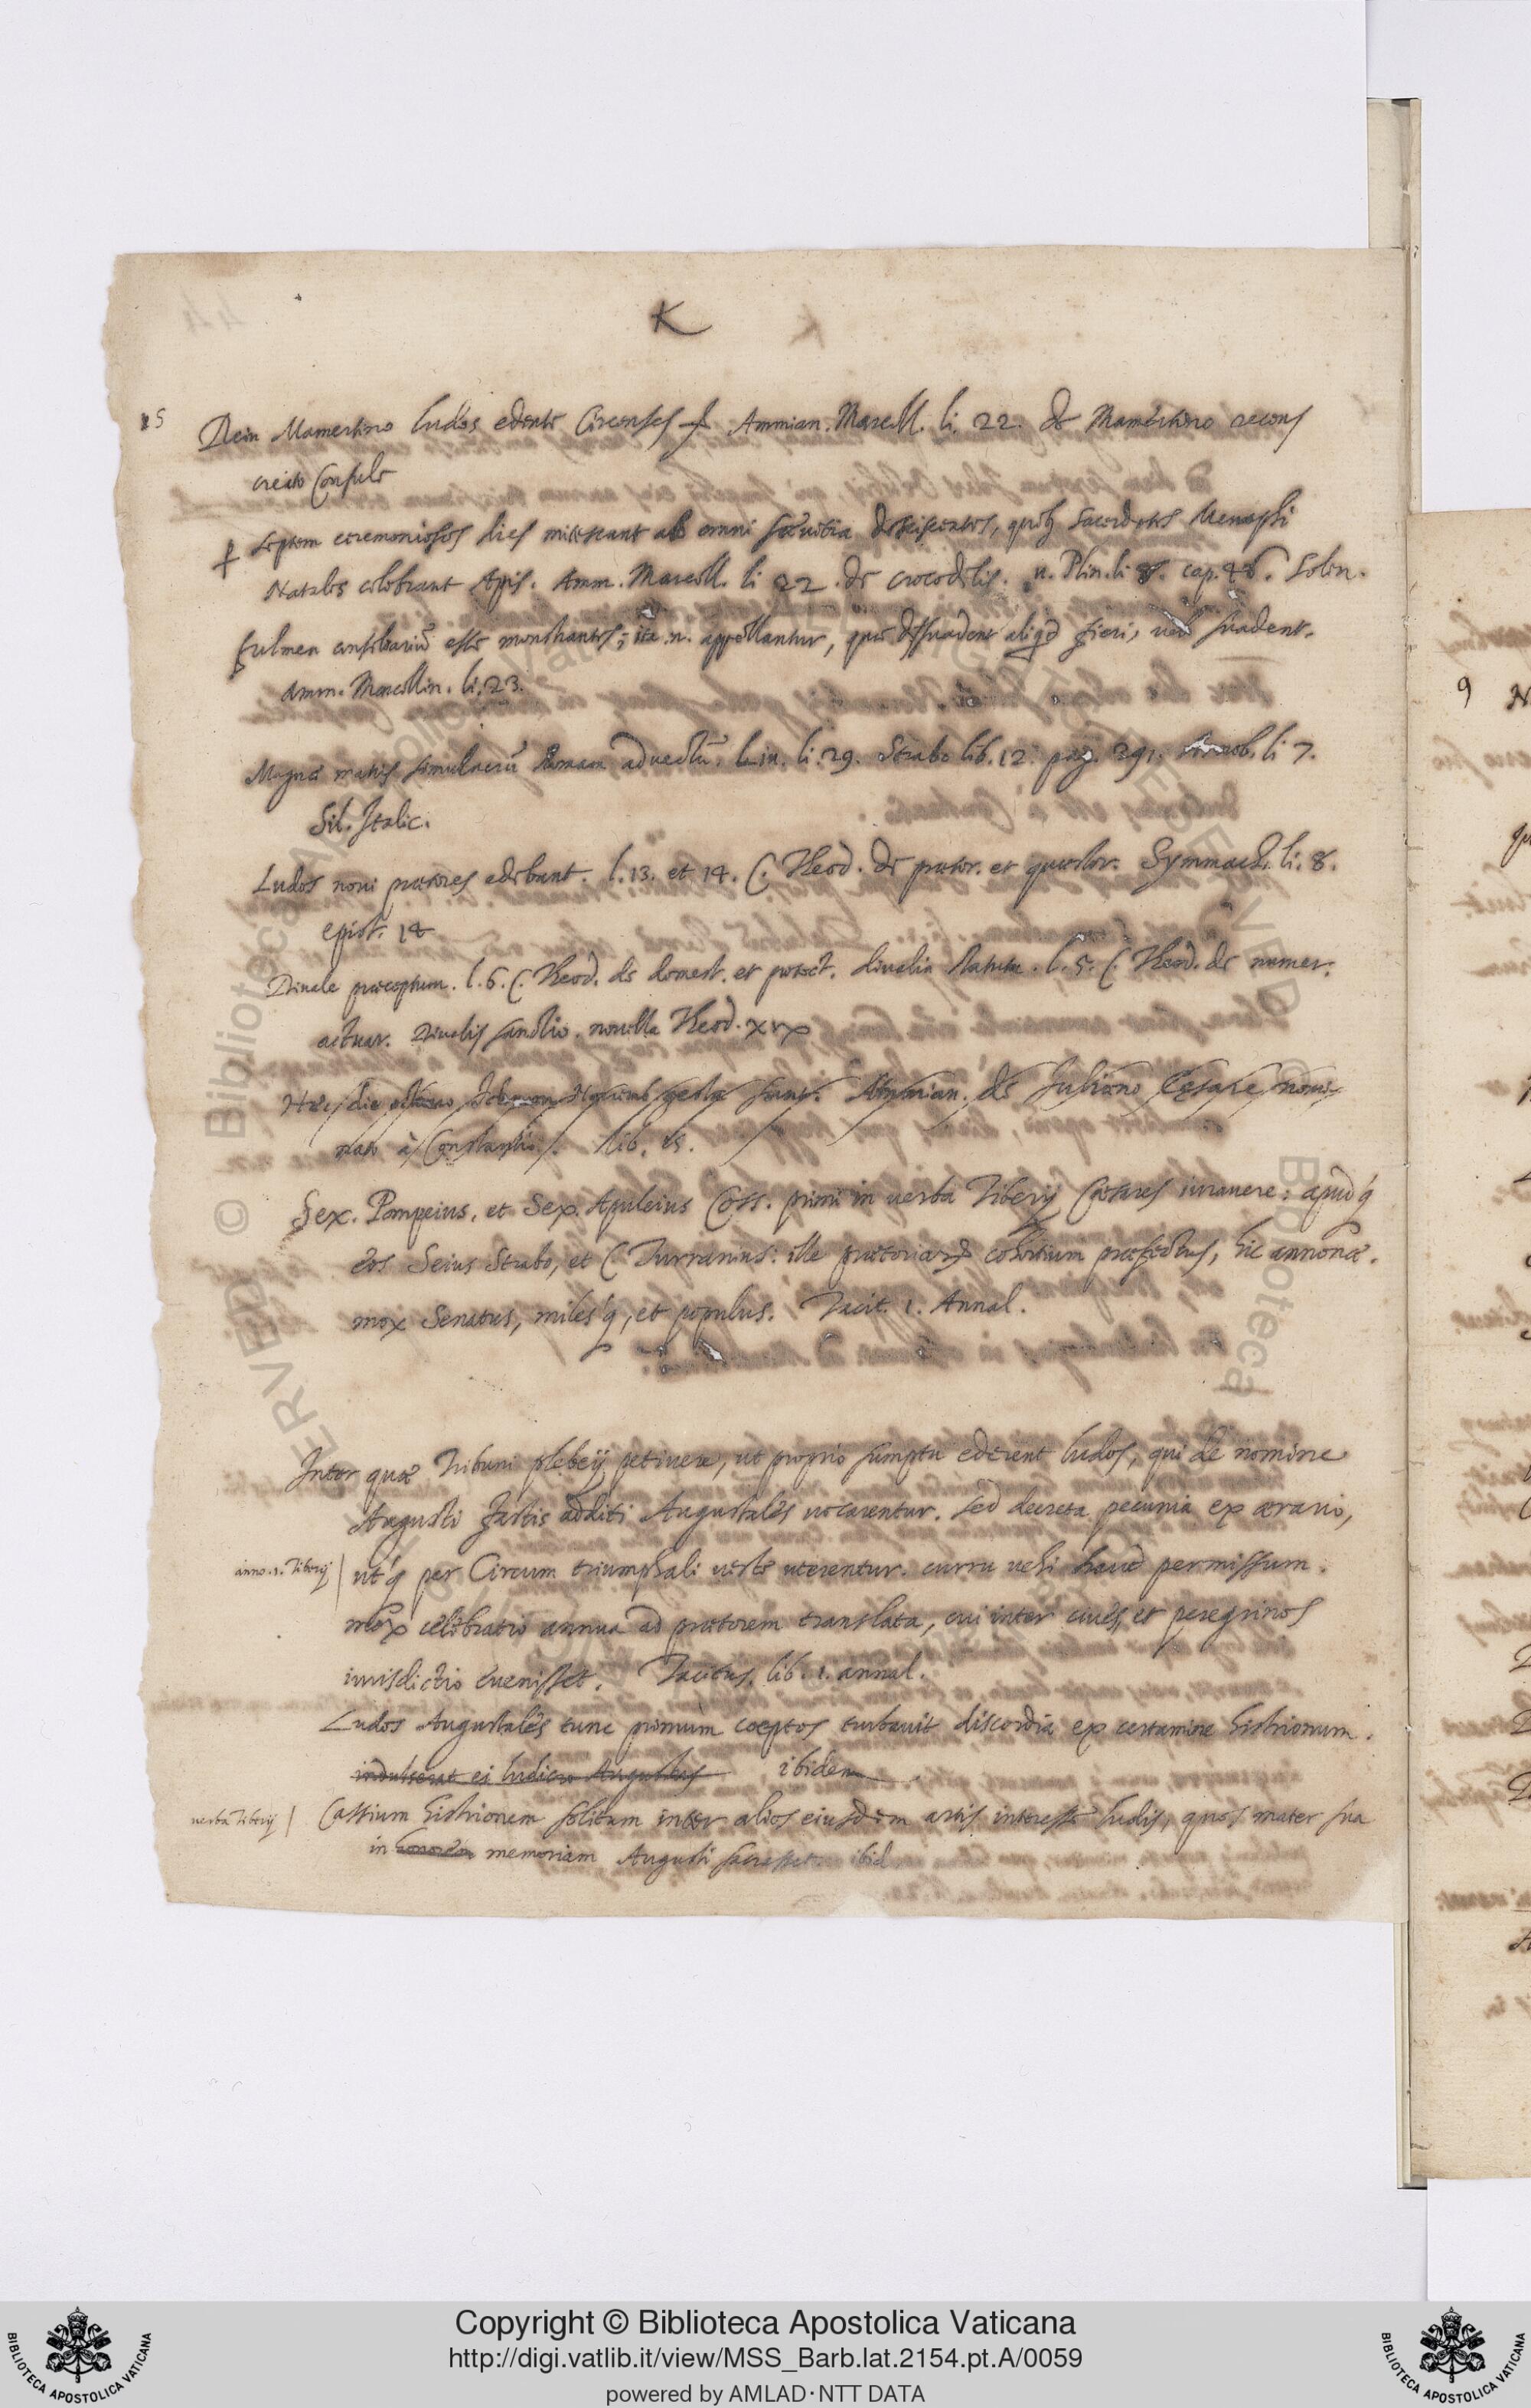 K
25 Dein Mamertino ludos edente Circenses Ammian. Marcell. li. 22. de Mamertino recens
creato Consule
Septem ceremoniosos dies mitescant ab omni saevitia desciscentes, quib; sacerdotes Memphi
Natales celebrant Apis. Amm. Marcell. li 22. de crocodilis. u. Plin. li 8. cap. 46. Solin.
fulmen consiliariũ esse monstrantes; ita .n. appellantur, quae dissuadent aliqd fieri, vel suadent.
Amm. Marcellin. li. 23.
Magnae matris simulacrũ Romam advectũ. Liu. li. 29. Strabo lib. 12. pag. 391. Arnob. li 7.
Sil. Italic.
Ludos noui praetores edebant. l. 13. et 14. C. Theod. de praetor. et quaestor. Symmach. li. 8.
epist. 14
Diuale praeceptum. l. 6. C. Theod. de domest. et protect. diualia statuta. l. 5. C. Theod. de numer.
actuar. Diualis sanctio. nouella Theod. xxx
Haec die Nouemb gesta sunt. Ammian. de Juliano Cęsare nomi-
nato à Constantio. lib. 15.
Sex. Pompeius, et Sex. Apuleius Coss. primi in uerba Tiberij Caesares iurauere: apud q́
eos Seius Strabo, et C Turranius: ille praetoriarũ cohortium praefectus, hic annonae.
mox Senatus, miles q́, et populus. Tacit. 1. Annal.
Inter quae Tribuni plebeij petiuere, ut proprio sumptu ederent ludos, qui de nomine
Augusti fastis additi Augustales uocarentur. sed decreta pecunia ex aerario,
anno .1. Tiberij | ut q́ per Circum triumphali ueste uterentur. curru uehi haud permissum.
mox celebratio annua ad praetorem translata, cui inter ciues, et peregrinos
iurisdictio euenisset. Tacitus. lib. 1. annal.
Ludos Augustales tunc primum coeptos turbauit discordia ex certamine histrionum.
indulserat ei ludicro Augustus ibidem
uerba Tiberij | Cassium histrionem solitum inter alios eiusdem artis interesse ludis, quos mater sua
in honorem memoriam Augusti sacrasset. ibid
Copyright © Biblioteca Apostolica Vaticana
http://digi.vatlib.it/view/MSS_Barb.lat.2154.pt.A/0059
powered by AMLAD·NTT DATA
BIBLIOTECA APOSTOLICA VATICANA
BIBLIOTECA APOSTOLICA VATICANA